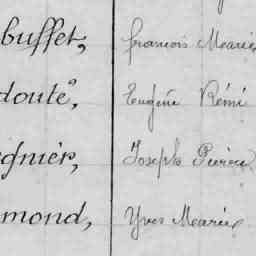 buffet, françois Marie
doute, Eugène Rémi
gnier, Joseph Pierre
mond, Yves Marie